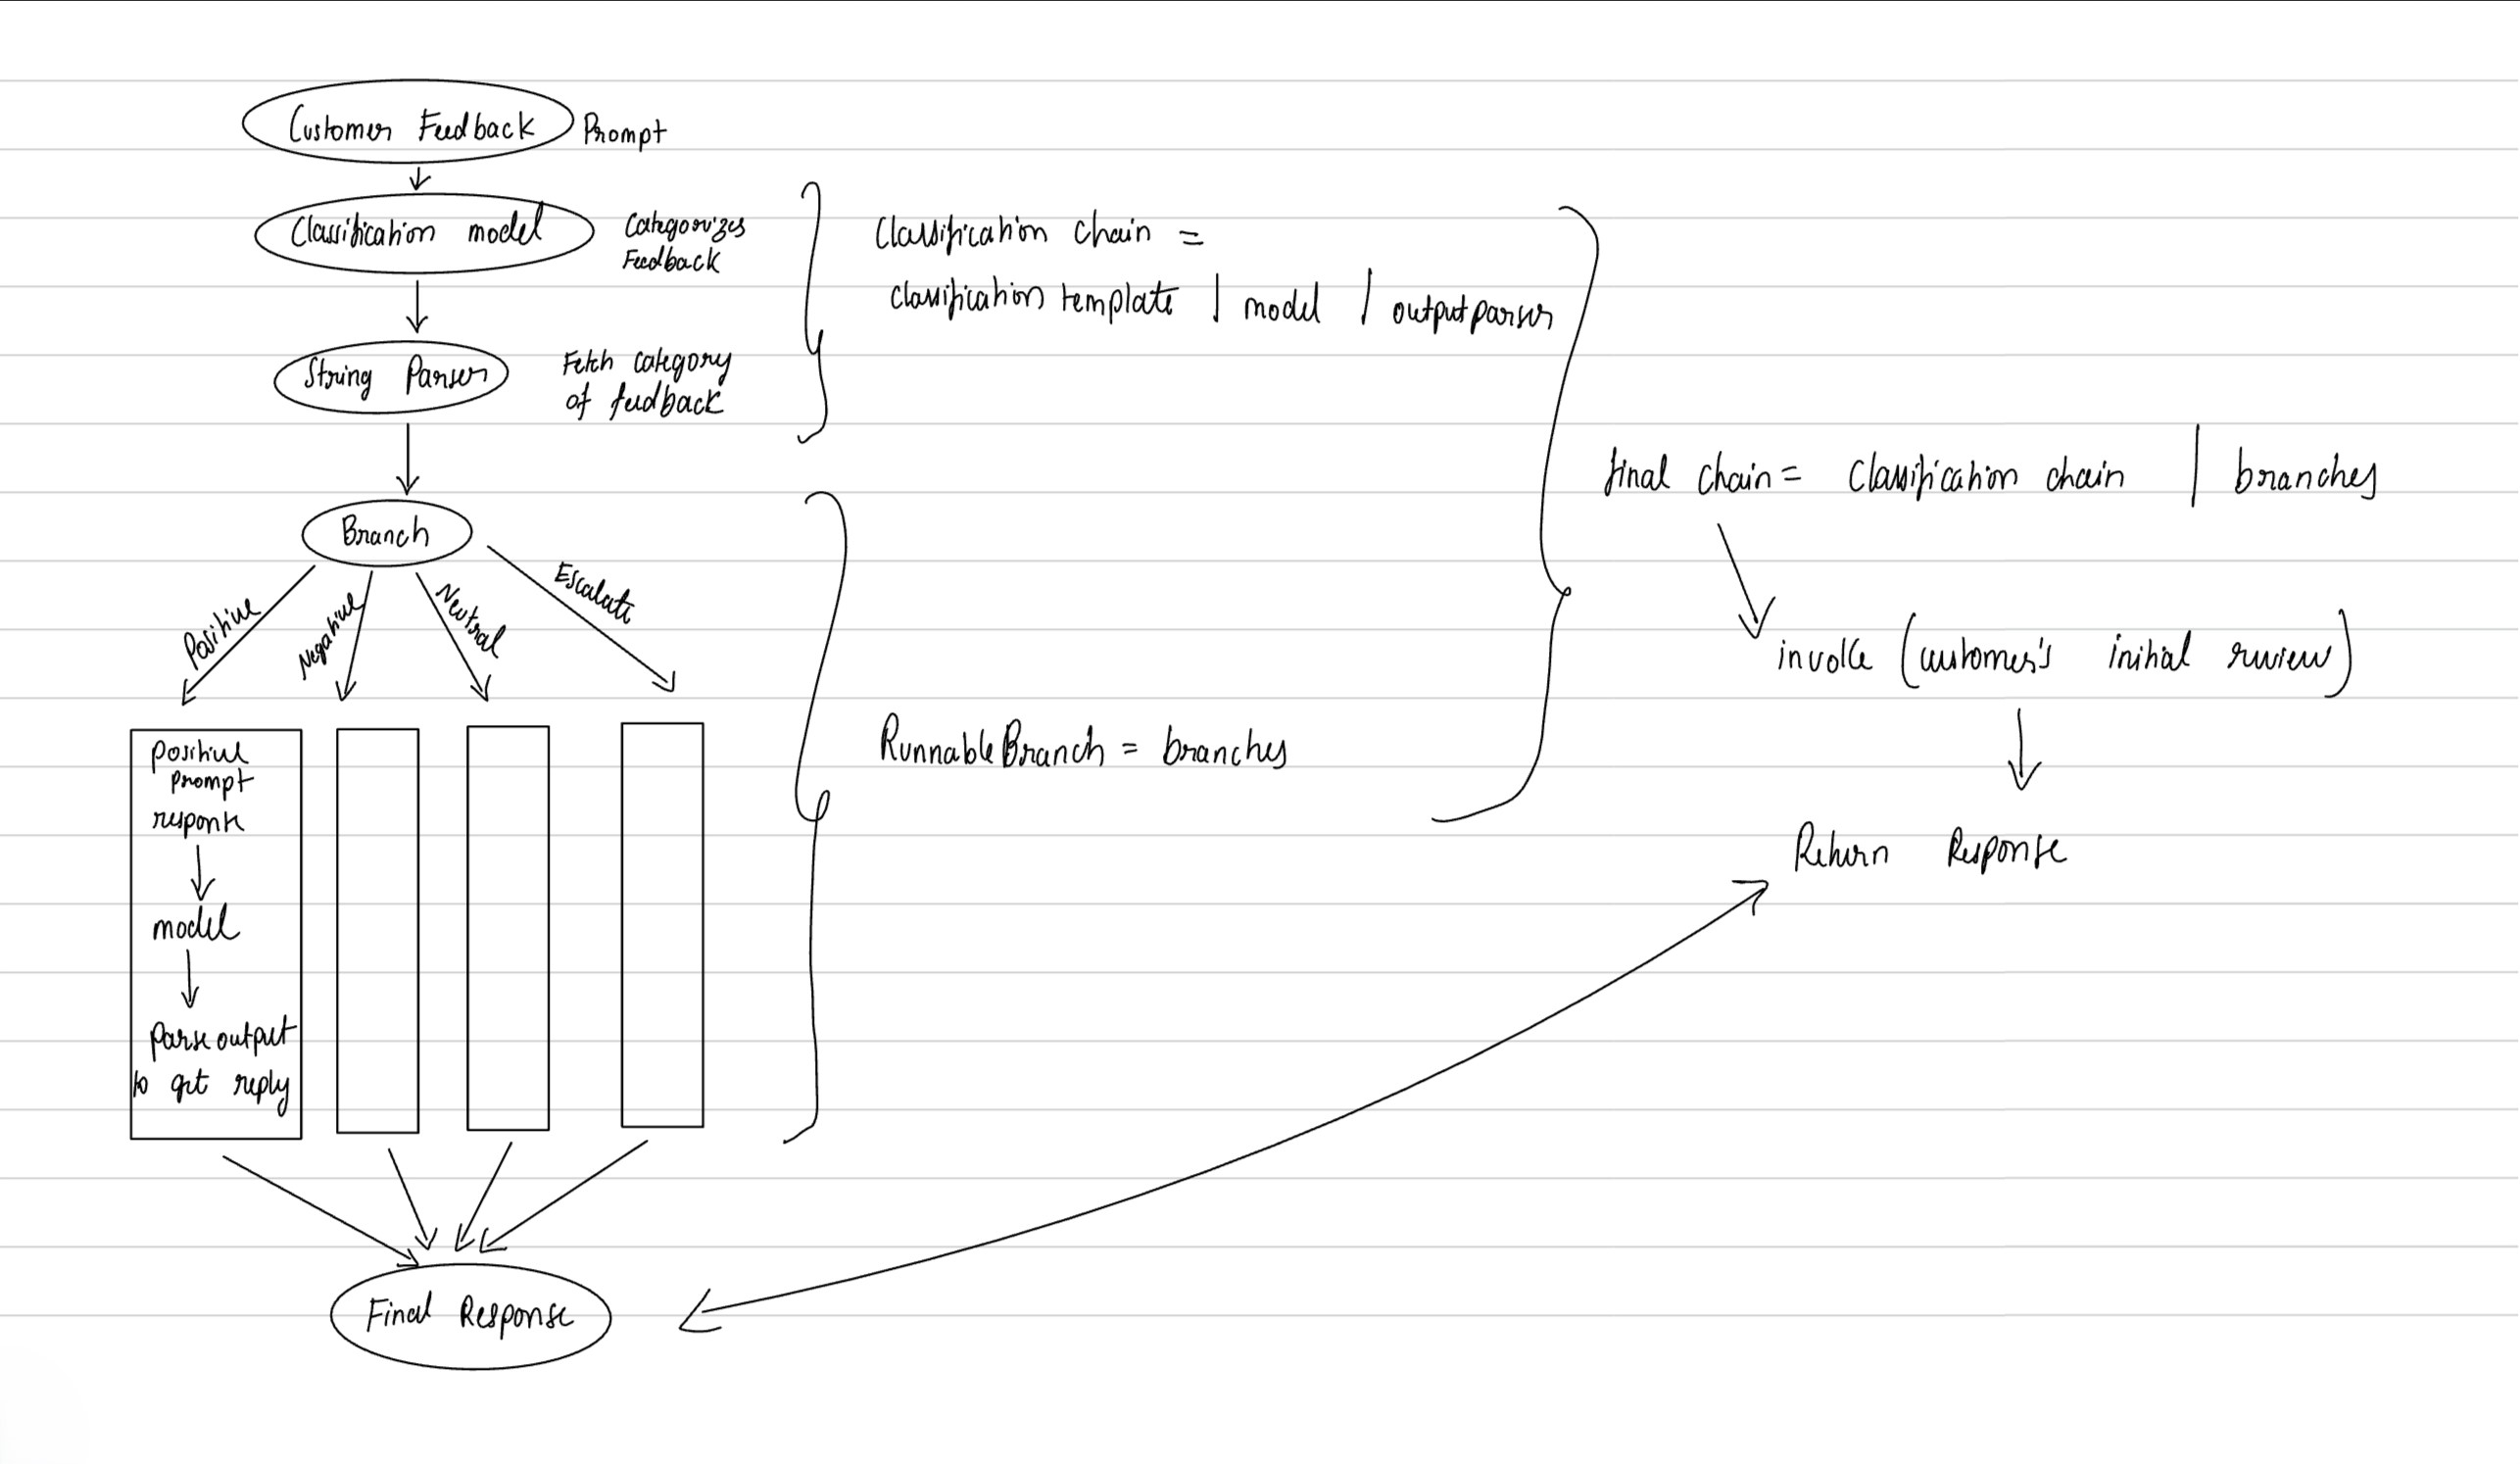 Customer Feedback Prompt
Classification model
Categorizes
Feedback
String Parser
Fetch category
of feedback
Branch
Positive
Negative
Neutral
Escalate
positive
prompt
response
model
parse output
to get reply
Final Response
Classification chain =
classification template | model | outputparser
RunnableBranch = branches
final chain = Classification chain | branches
invoke (customer's initial review)
Return Response